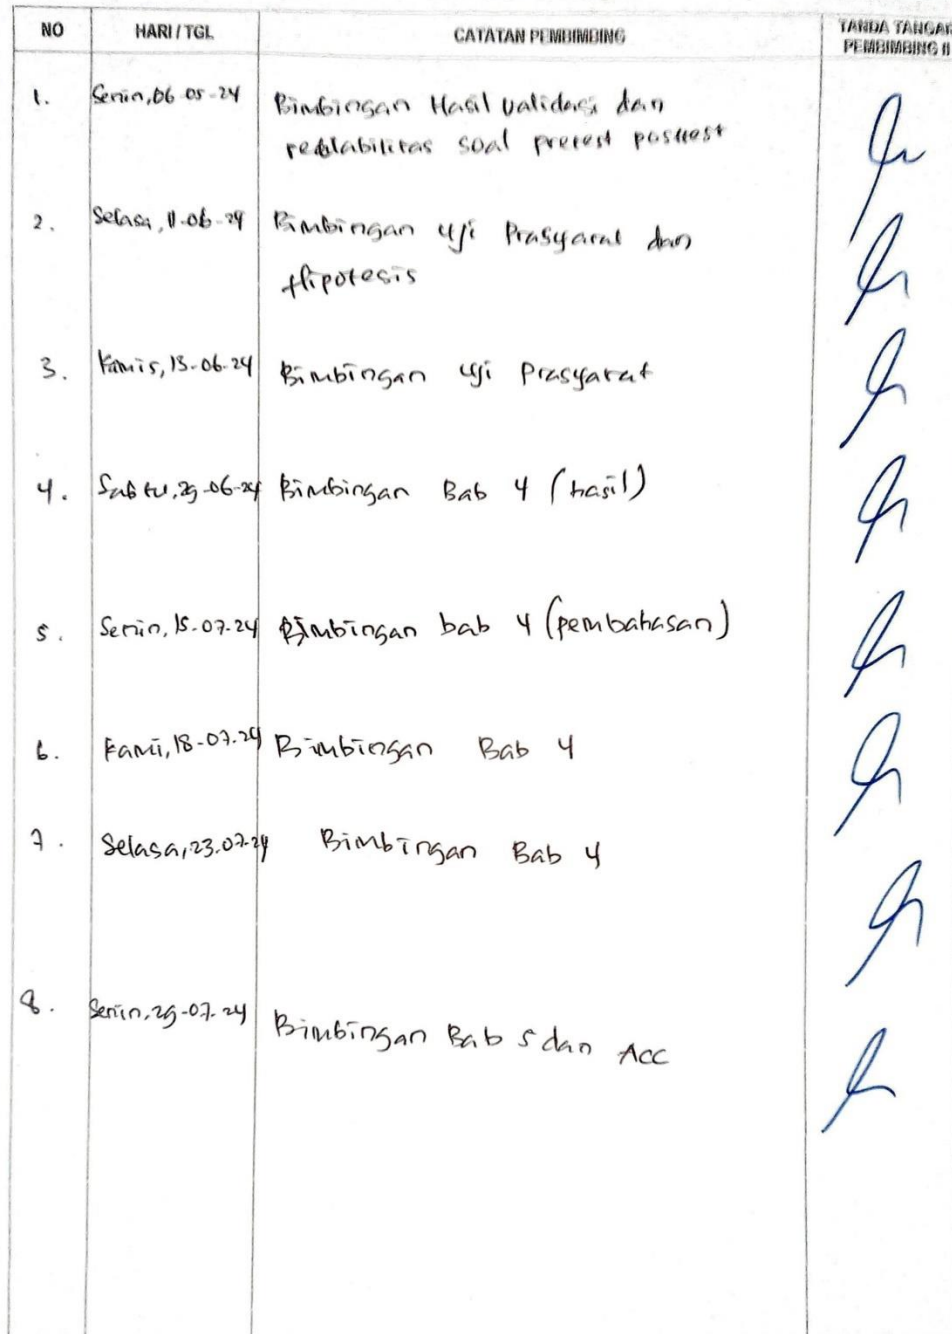 NO HARI / TGL CATATAN PEMBIMBING TANDA TANGAN
PEMBIMBING II
1. Senin, 06-05-24 Bimbingan Hasil validasi dan
soal pretest posttest
2. Selasa, 11-06-24 Bimbingan uji Prasyarat dan
Hipotesis
3. Kamis, 13-06-24 Bimbingan uji Prasyarat
4. Sabtu, 29-06-24 Bimbingan Bab 4 (hasil)
5. Senin, 15-07-24 Bimbingan bab 4 (pembahasan)
6. Kami, 18-07-24 Bimbingan Bab 4
7. Selasa, 23.07.24 Bimbingan Bab 4
8. Senin, 29-07-24 Bimbingan Bab 5 dan ACC